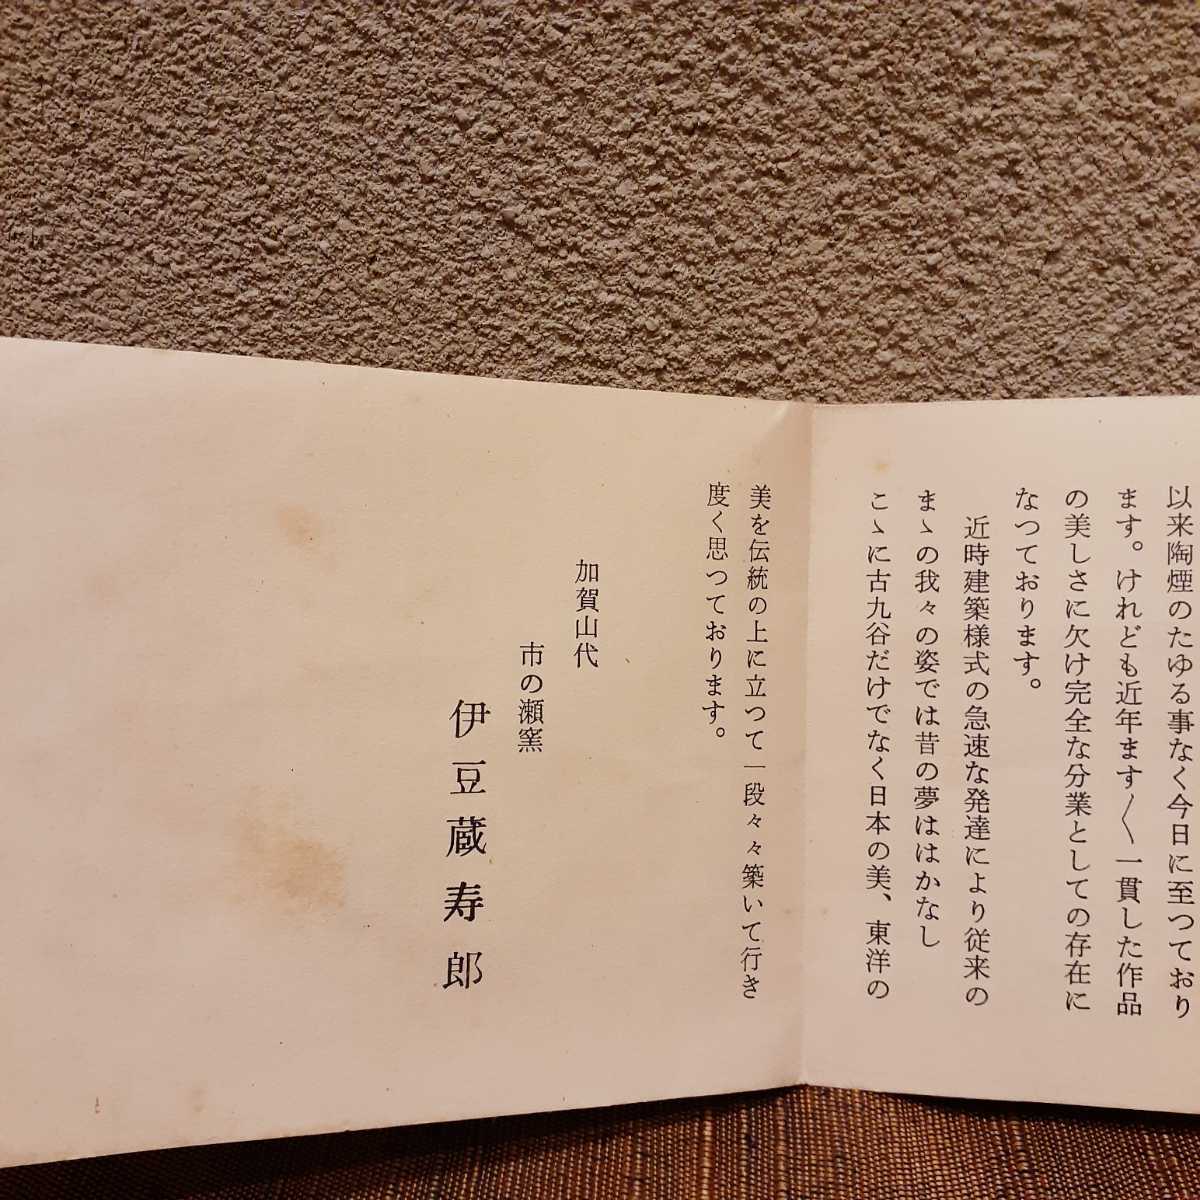 以来陶煙のたゆる事なく今日に至つており
ます。けれども近年ます〱一貫した作品
の美しさに欠け完全な分業としての存在に
なつております。
近時建築様式の急速な発達により従来の
まゝの我々の姿では昔の夢ははかなし
こゝに古九谷だけでなく日本の美、東洋の
美を伝統の上に立つて一段々々築いて行き
度く思つております。
加賀山代
市の瀬窯
伊豆蔵寿郎